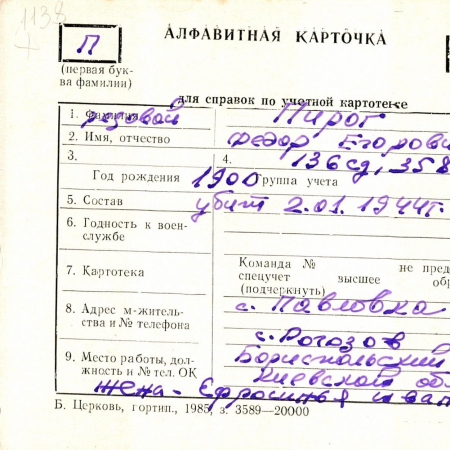 1138
П
АЛФАВИТНАЯ КАРТОЧКА
(первая бук-
ва фамилии)
для справок по учетной картотексе
1. Фамилия рядовой Пирог
2. Имя, отчество Федор Егорови
3. 4. 136 сд, 358
Год рождения 1900 группа учета
5. Состав убит 2.01.1944г.
6. Годность к воен-
службе
7. Картотека
Команда № не пред
спецучет высшее об
(подчеркнуть)
8. Адрес м-житель-
ства и № телефона
с. Павловка
с. Рогозов
9. Место работы, дол-
жность и № тел. ОК
Бориспольский
Киевской об
жена - Ефросинья Иван
Б. Церковь, гортип., 1985, з. 3589—20000